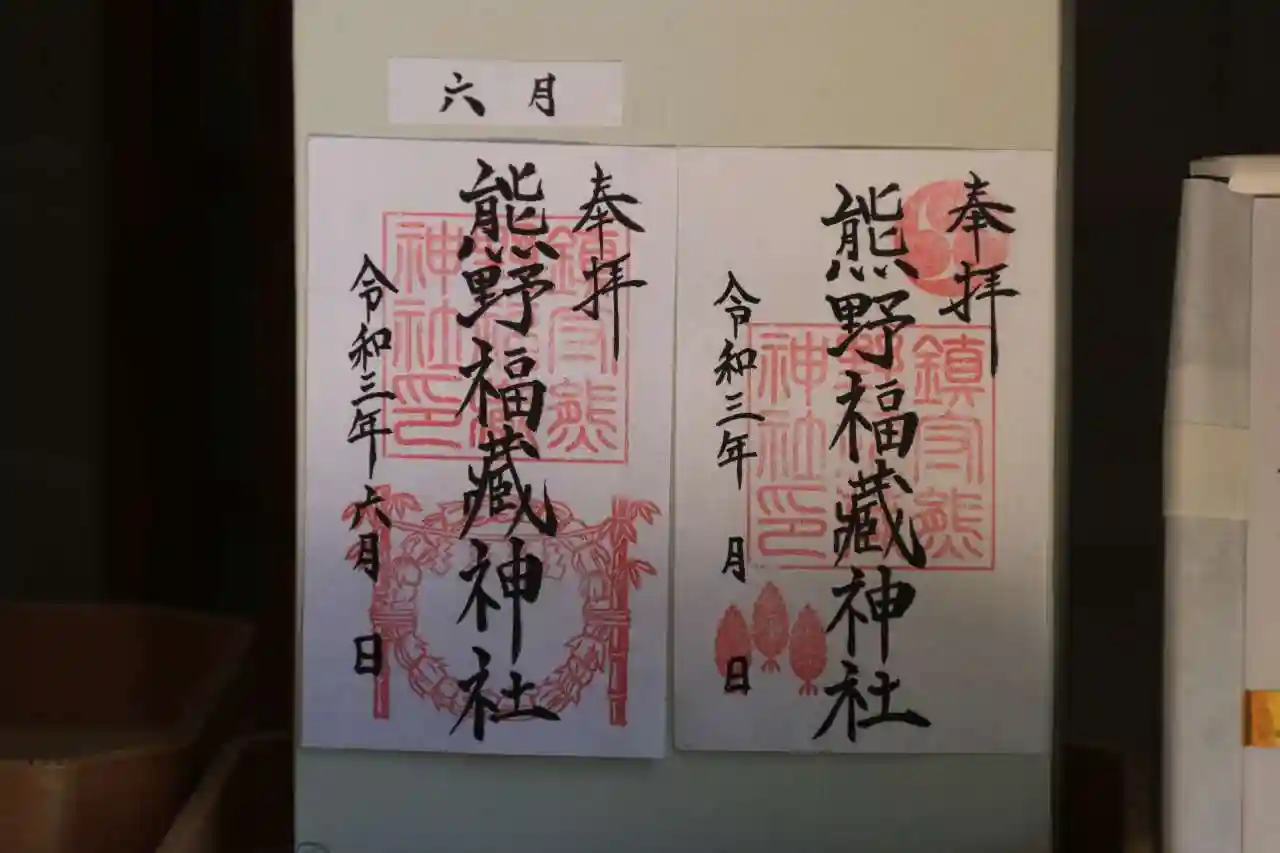 六月
奉拝
熊野福藏神社
令和三年六月日
鎮守熊
神社印
奉拝
熊野福藏神社
令和三年月日
鎮守熊
神社印